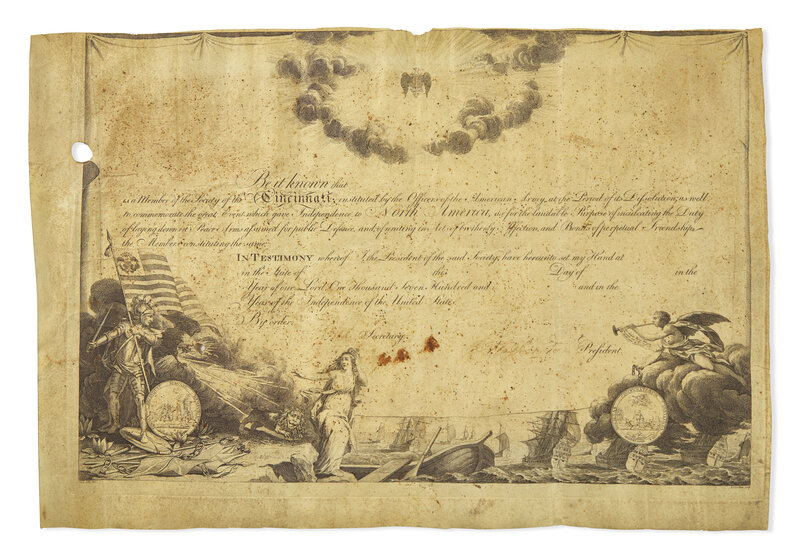 Be it known that
is a Member of the Society of the Cincinnati, instituted by the Officers of the American Army, at the Period of its Dissolution, as well
to commemorate the great Event which gave Independence to North America, as for the laudable Purpose of inculcating the Duty
of laying down in Peace Arms assumed for public Defence, and of uniting in Acts of brotherly Affection, and Bonds of perpetual Friendship
the Members constituting the same.
IN TESTIMONY whereof I the President of the said Society, have hereunto set my Hand at
in the State of this Day of in the
Year of our Lord One Thousand Seven Hundred and and in the
Year of the Independence of the United States.
By order,
Secretary.
President.